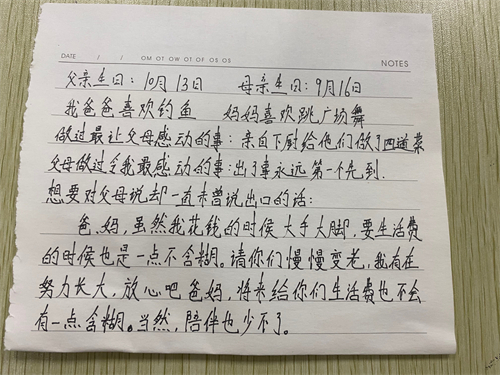 DATE / /
OM OT OW OT OF OS OS
NOTES
父亲生日:10月13日 母亲生日:9月16日
我爸爸喜欢钓鱼 妈妈喜欢跳广场舞
做过最让父母感动的事:亲自下厨给他们做了四道菜
父母做过令我最感动的事:出了事永远第一个先到.
想要对父母说却一直未曾说出口的话:
爸、妈,虽然我花钱的时候大手大脚,要生活费
的时候也是一点不含糊。请你们慢慢变老,我有在
努力长大,放心吧爸妈,将来给你们生活费也不会
有一点含糊。当然,陪伴也少不了。